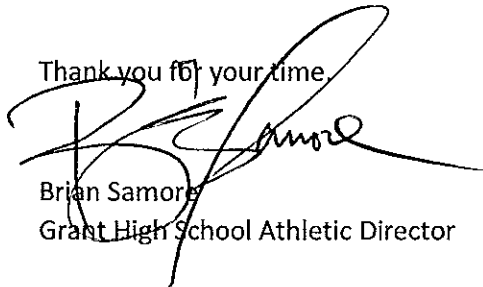 Thank you for your time,
B Samore
Brian Samore
Grant High School Athletic Director